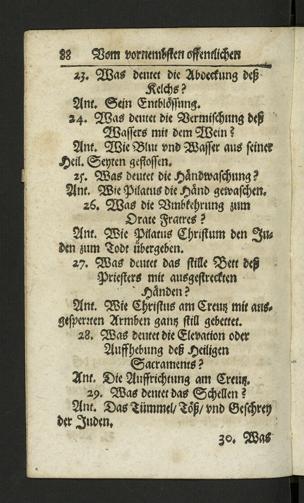 88 Vom vornembsten offentlichen
23. Was deutet die Abdeckung deß
Kelchs?
Ant. Sein Entblössung.
24. Was deutet die Vermischung deß
Wassers mit dem Wein?
Ant. Wie Blut vnd Wasser aus seiner
Heil. Seyten geflossen.
25. Was deutet die Händwaschung?
Ant. Wie Pilatus die Händ gewaschen.
26. Was die Vmbkehrung zum
Orate Fratres?
Ant. Wie Pilatus Christum den Ju-
den zum Todt übergeben.
27. Was deutet das stille Bett deß
Priesters mit ausgestreckten
Händen?
Ant. Wie Christus am Creutz mit aus-
gesperrten Armben gantz still gebettet.
28. Was deutet die Elevation oder
Auffhebung deß Heiligen
Sacraments?
Ant. Die Auffrichtung am Creutz.
29. Was deutet das Schellen?
Ant. Das Tümmel/ Töß/ vnd Geschrey
der Juden.
30. Was